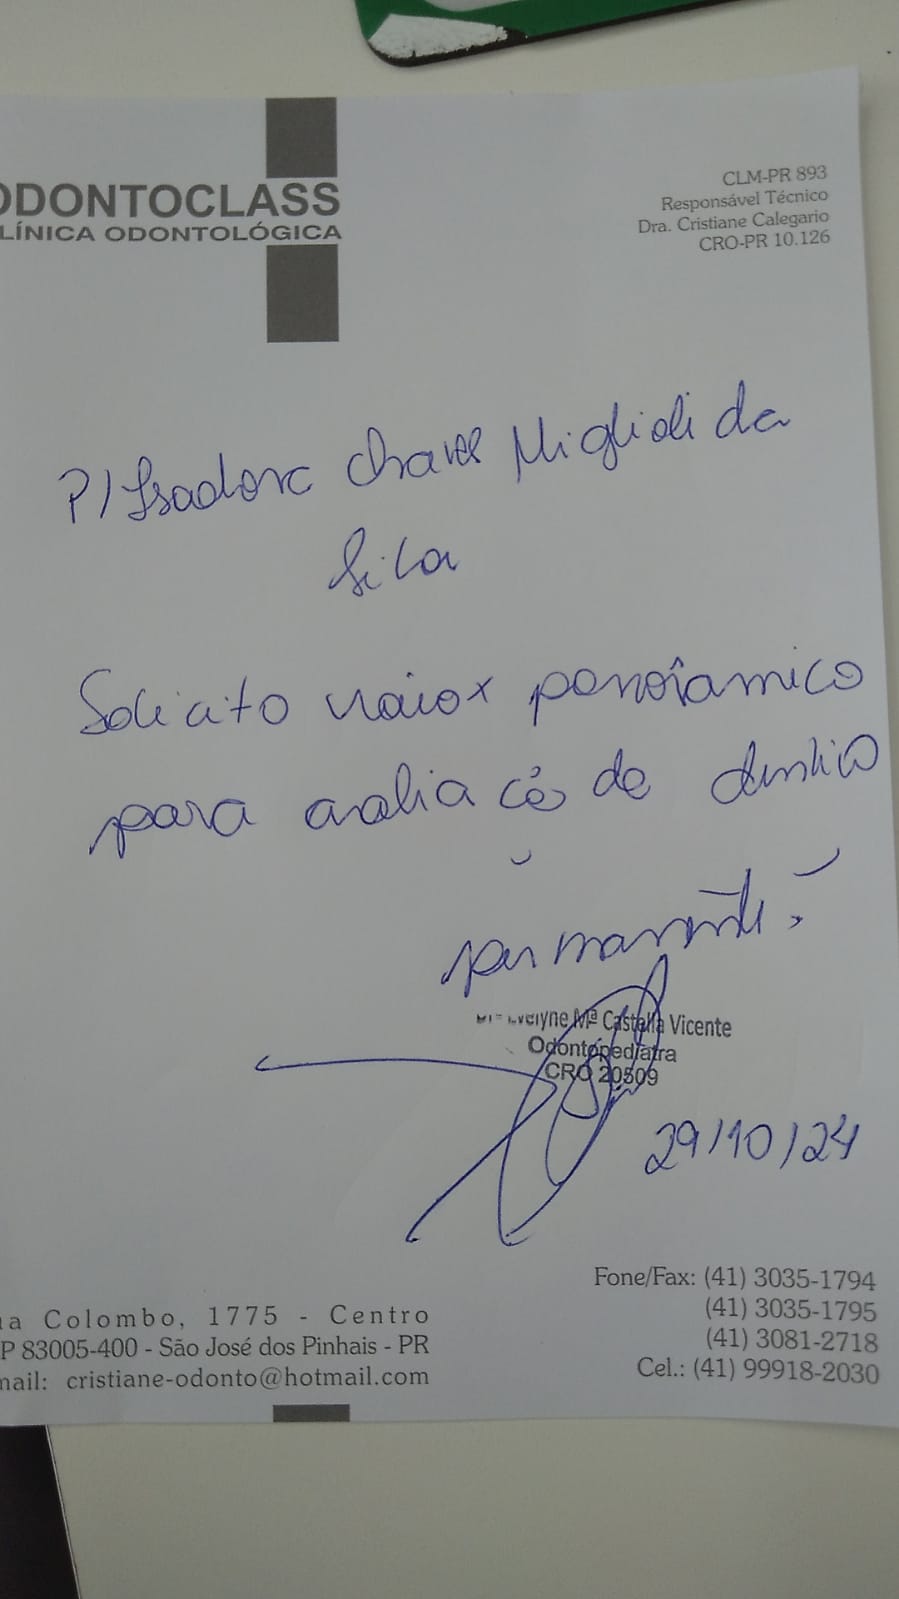 ODONTOCLASS
LÍNICA ODONTOLÓGICA
CLM-PR 893
Responsável Técnico
Dra. Cristiane Calegario
CRO-PR 10.126
P/ Isadora Chaves Miglioli da
Silva
Solicito raio x panorâmico
para avaliação de dentição
permanente.
Evelyne Mª Castella Vicente
Odontopediatra
CRO 20509
29/10/24
Fone/Fax: (41) 3035-1794
(41) 3035-1795
(41) 3081-2718
Cel.: (41) 99918-2030
ua Colombo, 1775 - Centro
P 83005-400 - São José dos Pinhais - PR
mail: cristiane-odonto@hotmail.com